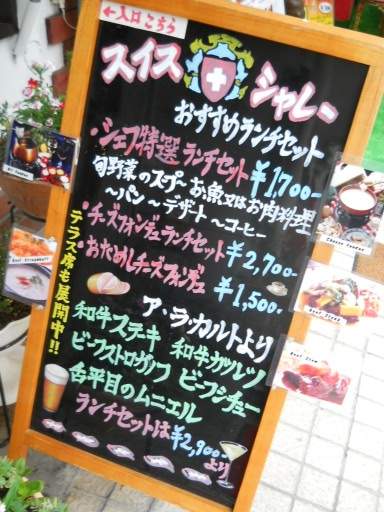 ←入口こちら
スイス シャレー
おすすめランチセット
・シェフ特選ランチセット ¥1,700-
旬野菜のスープ お魚又はお肉料理
〜パン〜デザート〜コーヒー
・チーズフォンデュランチセット ¥2,700-
・おためしチーズフォンデュ ¥1,500-
テラス席も展開中!!
ア・ラ・カルトより
和牛ステーキ 和牛カツレツ
ビーフストロガノフ ビーフシチュー
舌平目のムニエル
ランチセットは¥2,900-より
Cheese Fondue
Beef Stroganoff
Beef Steak
Beef Stew